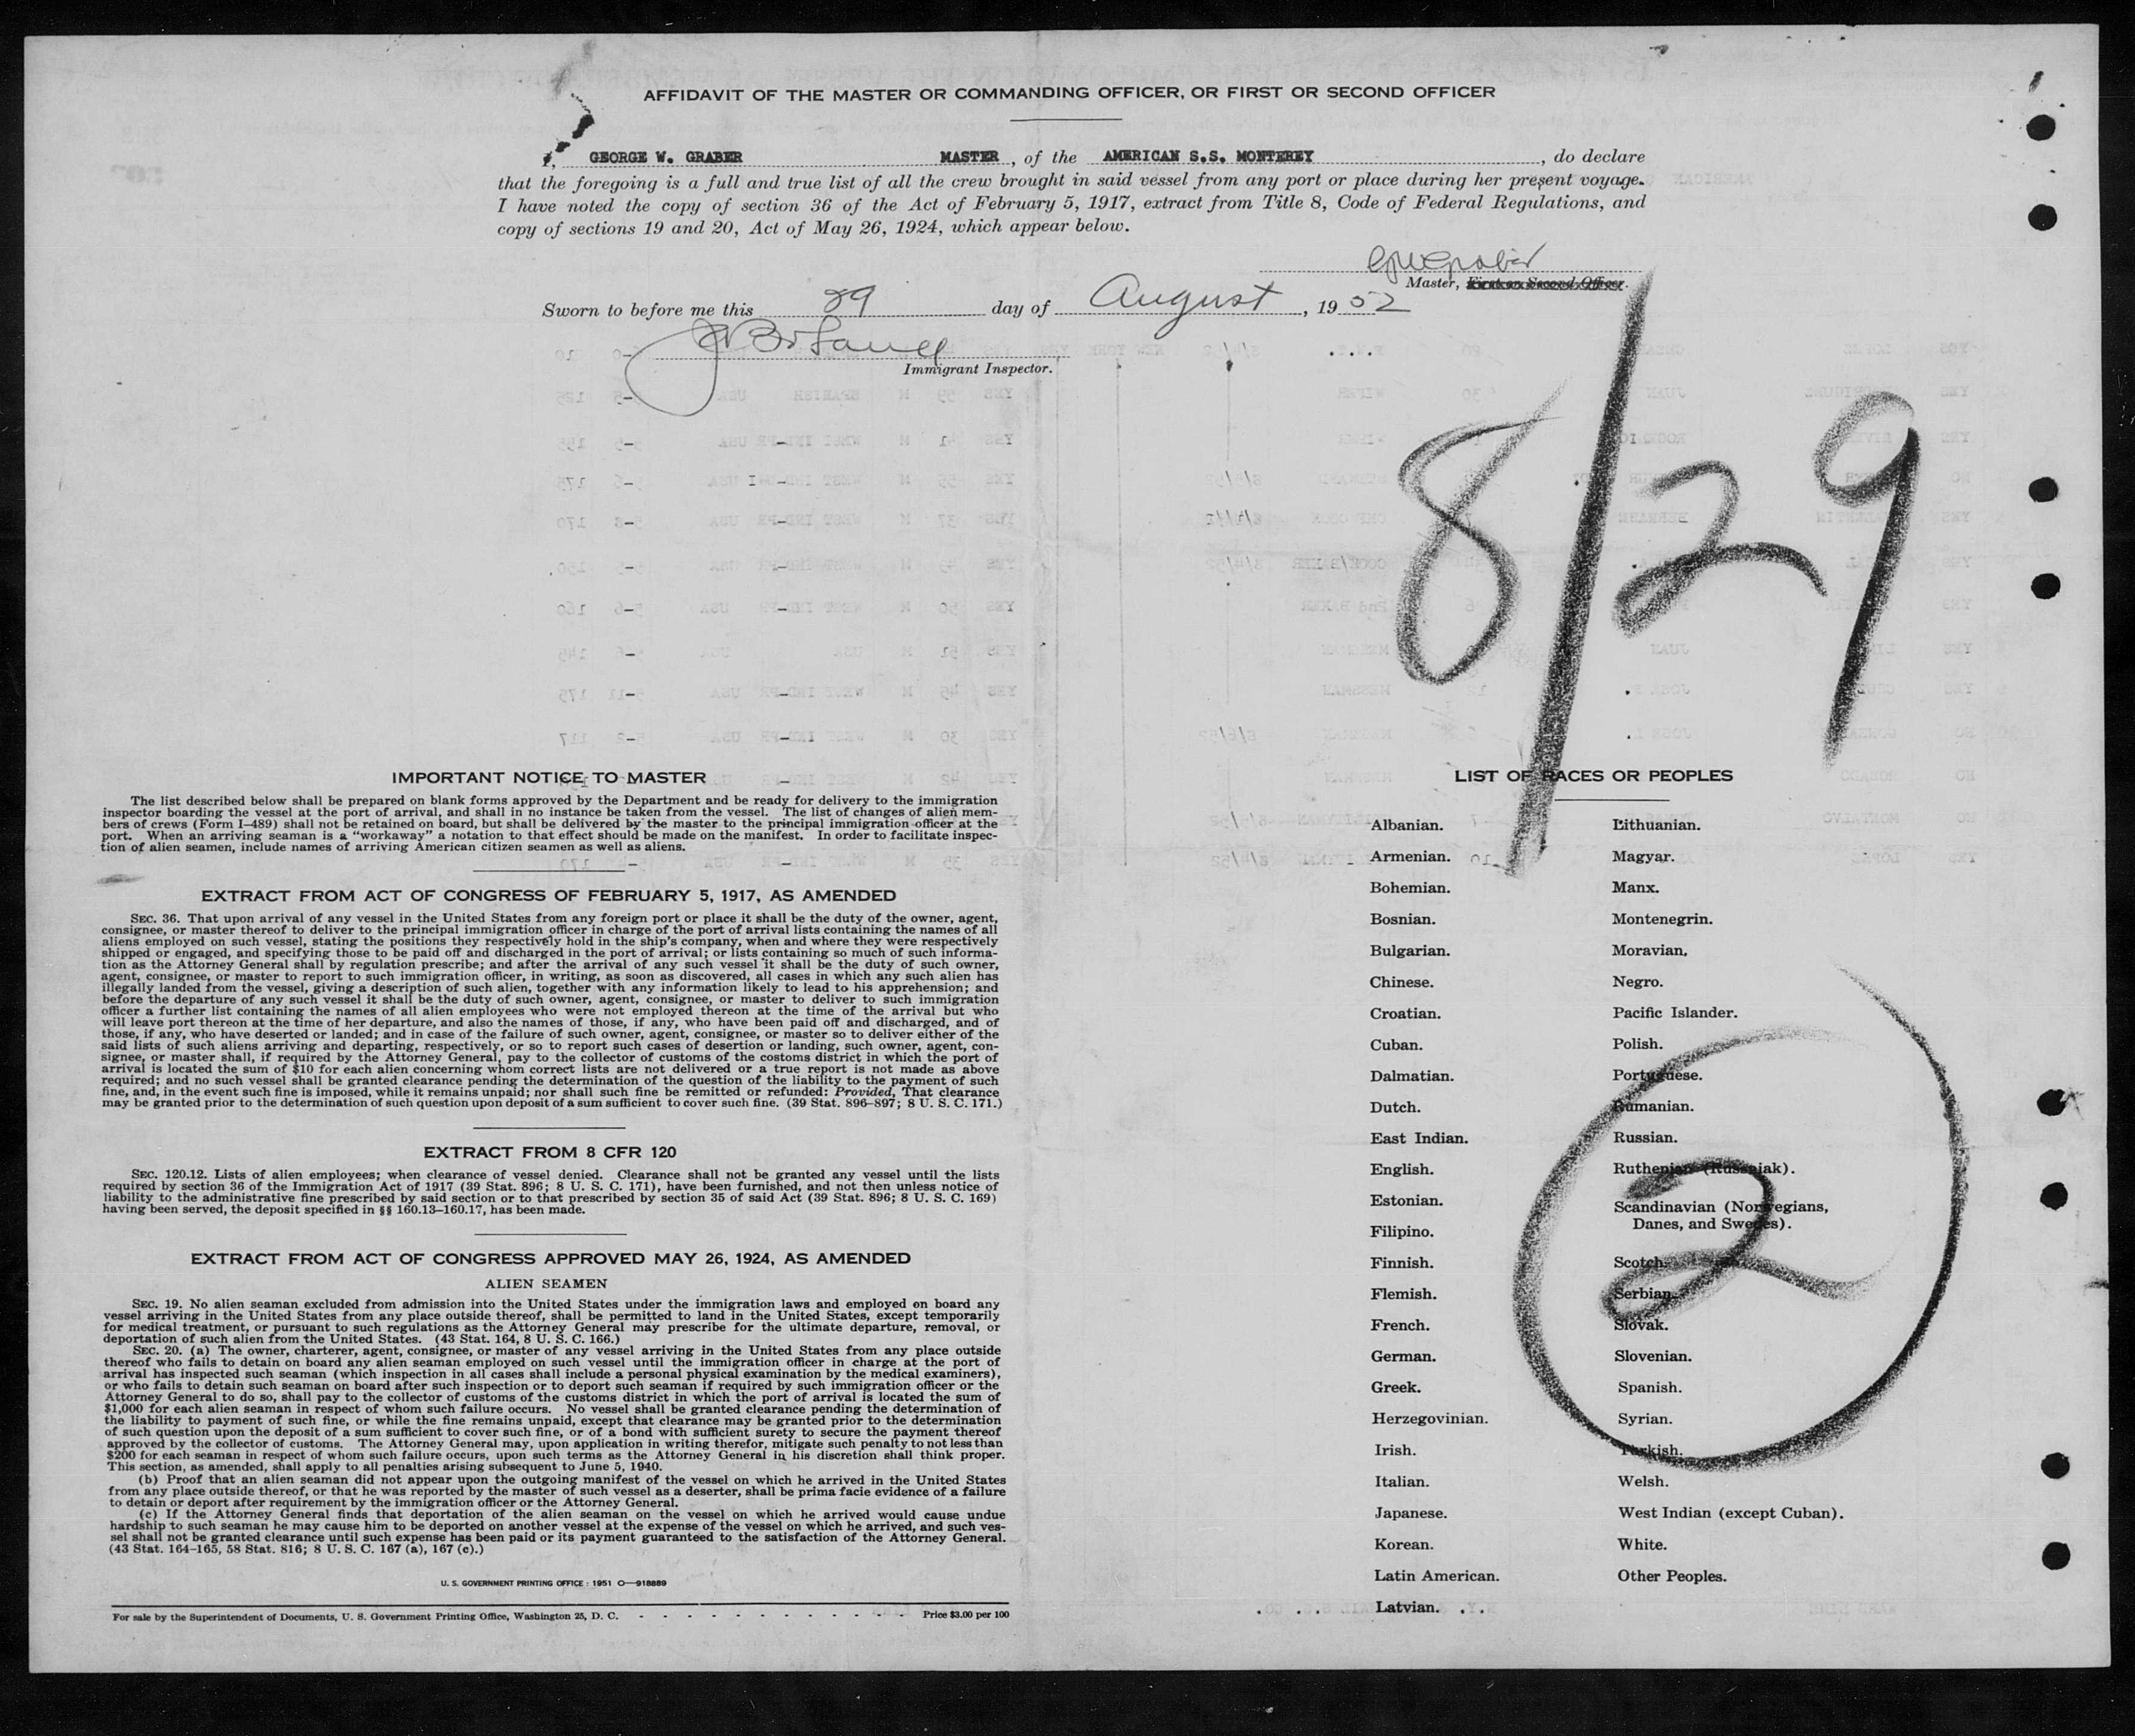 AFFIDAVIT OF THE MASTER OR COMMANDING OFFICER, OR FIRST OR SECOND OFFICER
I, GEORGE W. GRABER MASTER, of the AMERICAN S.S. MONTEREY, do declare
that the foregoing is a full and true list of all the crew brought in said vessel from any port or place during her present voyage.
I have noted the copy of section 36 of the Act of February 5, 1917, extract from Title 8, Code of Federal Regulations, and
copy of sections 19 and 20, Act of May 26, 1924, which appear below.
GWGraber
Master, First or Second Officer.
Sworn to before me this 29 day of August, 1952
Immigrant Inspector.
8/29
IMPORTANT NOTICE TO MASTER
The list described below shall be prepared on blank forms approved by the Department and be ready for delivery to the immigration
inspector boarding the vessel at the port of arrival, and shall in no instance be taken from the vessel. The list of changes of alien mem-
bers of crews (Form I–489) shall not be retained on board, but shall be delivered by the master to the principal immigration officer at the
port. When an arriving seaman is a “workaway” a notation to that effect should be made on the manifest. In order to facilitate inspec-
tion of alien seamen, include names of arriving American citizen seamen as well as aliens.
EXTRACT FROM ACT OF CONGRESS OF FEBRUARY 5, 1917, AS AMENDED
SEC. 36. That upon arrival of any vessel in the United States from any foreign port or place it shall be the duty of the owner, agent,
consignee, or master thereof to deliver to the principal immigration officer in charge of the port of arrival lists containing the names of all
aliens employed on such vessel, stating the positions they respectively hold in the ship's company, when and where they were respectively
shipped or engaged, and specifying those to be paid off and discharged in the port of arrival; or lists containing so much of such informa-
tion as the Attorney General shall by regulation prescribe; and after the arrival of any such vessel it shall be the duty of such owner,
agent, consignee, or master to report to such immigration officer, in writing, as soon as discovered, all cases in which any such alien has
illegally landed from the vessel, giving a description of such alien, together with any information likely to lead to his apprehension; and
before the departure of any such vessel it shall be the duty of such owner, agent, consignee, or master to deliver to such immigration
officer a further list containing the names of all alien employees who were not employed thereon at the time of the arrival but who
will leave port thereon at the time of her departure, and also the names of those, if any, who have been paid off and discharged, and of
those, if any, who have deserted or landed; and in case of the failure of such owner, agent, consignee, or master so to deliver either of the
said lists of such aliens arriving and departing, respectively, or so to report such cases of desertion or landing, such owner, agent, con-
signee, or master shall, if required by the Attorney General, pay to the collector of customs of the costoms district in which the port of
arrival is located the sum of $10 for each alien concerning whom correct lists are not delivered or a true report is not made as above
required; and no such vessel shall be granted clearance pending the determination of the question of the liability to the payment of such
fine, and, in the event such fine is imposed, while it remains unpaid; nor shall such fine be remitted or refunded: Provided, That clearance
may be granted prior to the determination of such question upon deposit of a sum sufficient to cover such fine. (39 Stat. 896–897; 8 U. S. C. 171.)
EXTRACT FROM 8 CFR 120
SEC. 120.12. Lists of alien employees; when clearance of vessel denied. Clearance shall not be granted any vessel until the lists
required by section 36 of the Immigration Act of 1917 (39 Stat. 896; 8 U. S. C. 171), have been furnished, and not then unless notice of
liability to the administrative fine prescribed by said section or to that prescribed by section 35 of said Act (39 Stat. 896; 8 U. S. C. 169)
having been served, the deposit specified in §§ 160.13–160.17, has been made.
EXTRACT FROM ACT OF CONGRESS APPROVED MAY 26, 1924, AS AMENDED
ALIEN SEAMEN
SEC. 19. No alien seaman excluded from admission into the United States under the immigration laws and employed on board any
vessel arriving in the United States from any place outside thereof, shall be permitted to land in the United States, except temporarily
for medical treatment, or pursuant to such regulations as the Attorney General may prescribe for the ultimate departure, removal, or
deportation of such alien from the United States. (43 Stat. 164, 8 U. S. C. 166.)
SEC. 20. (a) The owner, charterer, agent, consignee, or master of any vessel arriving in the United States from any place outside
thereof who fails to detain on board any alien seaman employed on such vessel until the immigration officer in charge at the port of
arrival has inspected such seaman (which inspection in all cases shall include a personal physical examination by the medical examiners),
or who fails to detain such seaman on board after such inspection or to deport such seaman if required by such immigration officer or the
Attorney General to do so, shall pay to the collector of customs of the customs district in which the port of arrival is located the sum of
$1,000 for each alien seaman in respect of whom such failure occurs. No vessel shall be granted clearance pending the determination of
the liability to payment of such fine, or while the fine remains unpaid, except that clearance may be granted prior to the determination
of such question upon the deposit of a sum sufficient to cover such fine, or of a bond with sufficient surety to secure the payment thereof
approved by the collector of customs. The Attorney General may, upon application in writing therefor, mitigate such penalty to not less than
$200 for each seaman in respect of whom such failure occurs, upon such terms as the Attorney General in his discretion shall think proper.
This section, as amended, shall apply to all penalties arising subsequent to June 5, 1940.
(b) Proof that an alien seaman did not appear upon the outgoing manifest of the vessel on which he arrived in the United States
from any place outside thereof, or that he was reported by the master of such vessel as a deserter, shall be prima facie evidence of a failure
to detain or deport after requirement by the immigration officer or the Attorney General.
(c) If the Attorney General finds that deportation of the alien seaman on the vessel on which he arrived would cause undue
hardship to such seaman he may cause him to be deported on another vessel at the expense of the vessel on which he arrived, and such ves-
sel shall not be granted clearance until such expense has been paid or its payment guaranteed to the satisfaction of the Attorney General.
(43 Stat. 164–165, 58 Stat. 816; 8 U. S. C. 167 (a), 167 (c).)
U. S. GOVERNMENT PRINTING OFFICE : 1951 O—918889
For sale by the Superintendent of Documents, U. S. Government Printing Office, Washington 25, D. C. - - - - - - - - - - - - Price $3.00 per 100
LIST OF RACES OR PEOPLES
Albanian.
Armenian.
Bohemian.
Bosnian.
Bulgarian.
Chinese.
Croatian.
Cuban.
Dalmatian.
Dutch.
East Indian.
English.
Estonian.
Filipino.
Finnish.
Flemish.
French.
German.
Greek.
Herzegovinian.
Irish.
Italian.
Japanese.
Korean.
Latin American.
Latvian.
Lithuanian.
Magyar.
Manx.
Montenegrin.
Moravian.
Negro.
Pacific Islander.
Polish.
Portuguese.
Rumanian.
Russian.
Ruthenian (Russniak).
Scandinavian (Norwegians,
Danes, and Swedes).
Scotch.
Serbian.
Slovak.
Slovenian.
Spanish.
Syrian.
Turkish.
Welsh.
West Indian (except Cuban).
White.
Other Peoples.
2